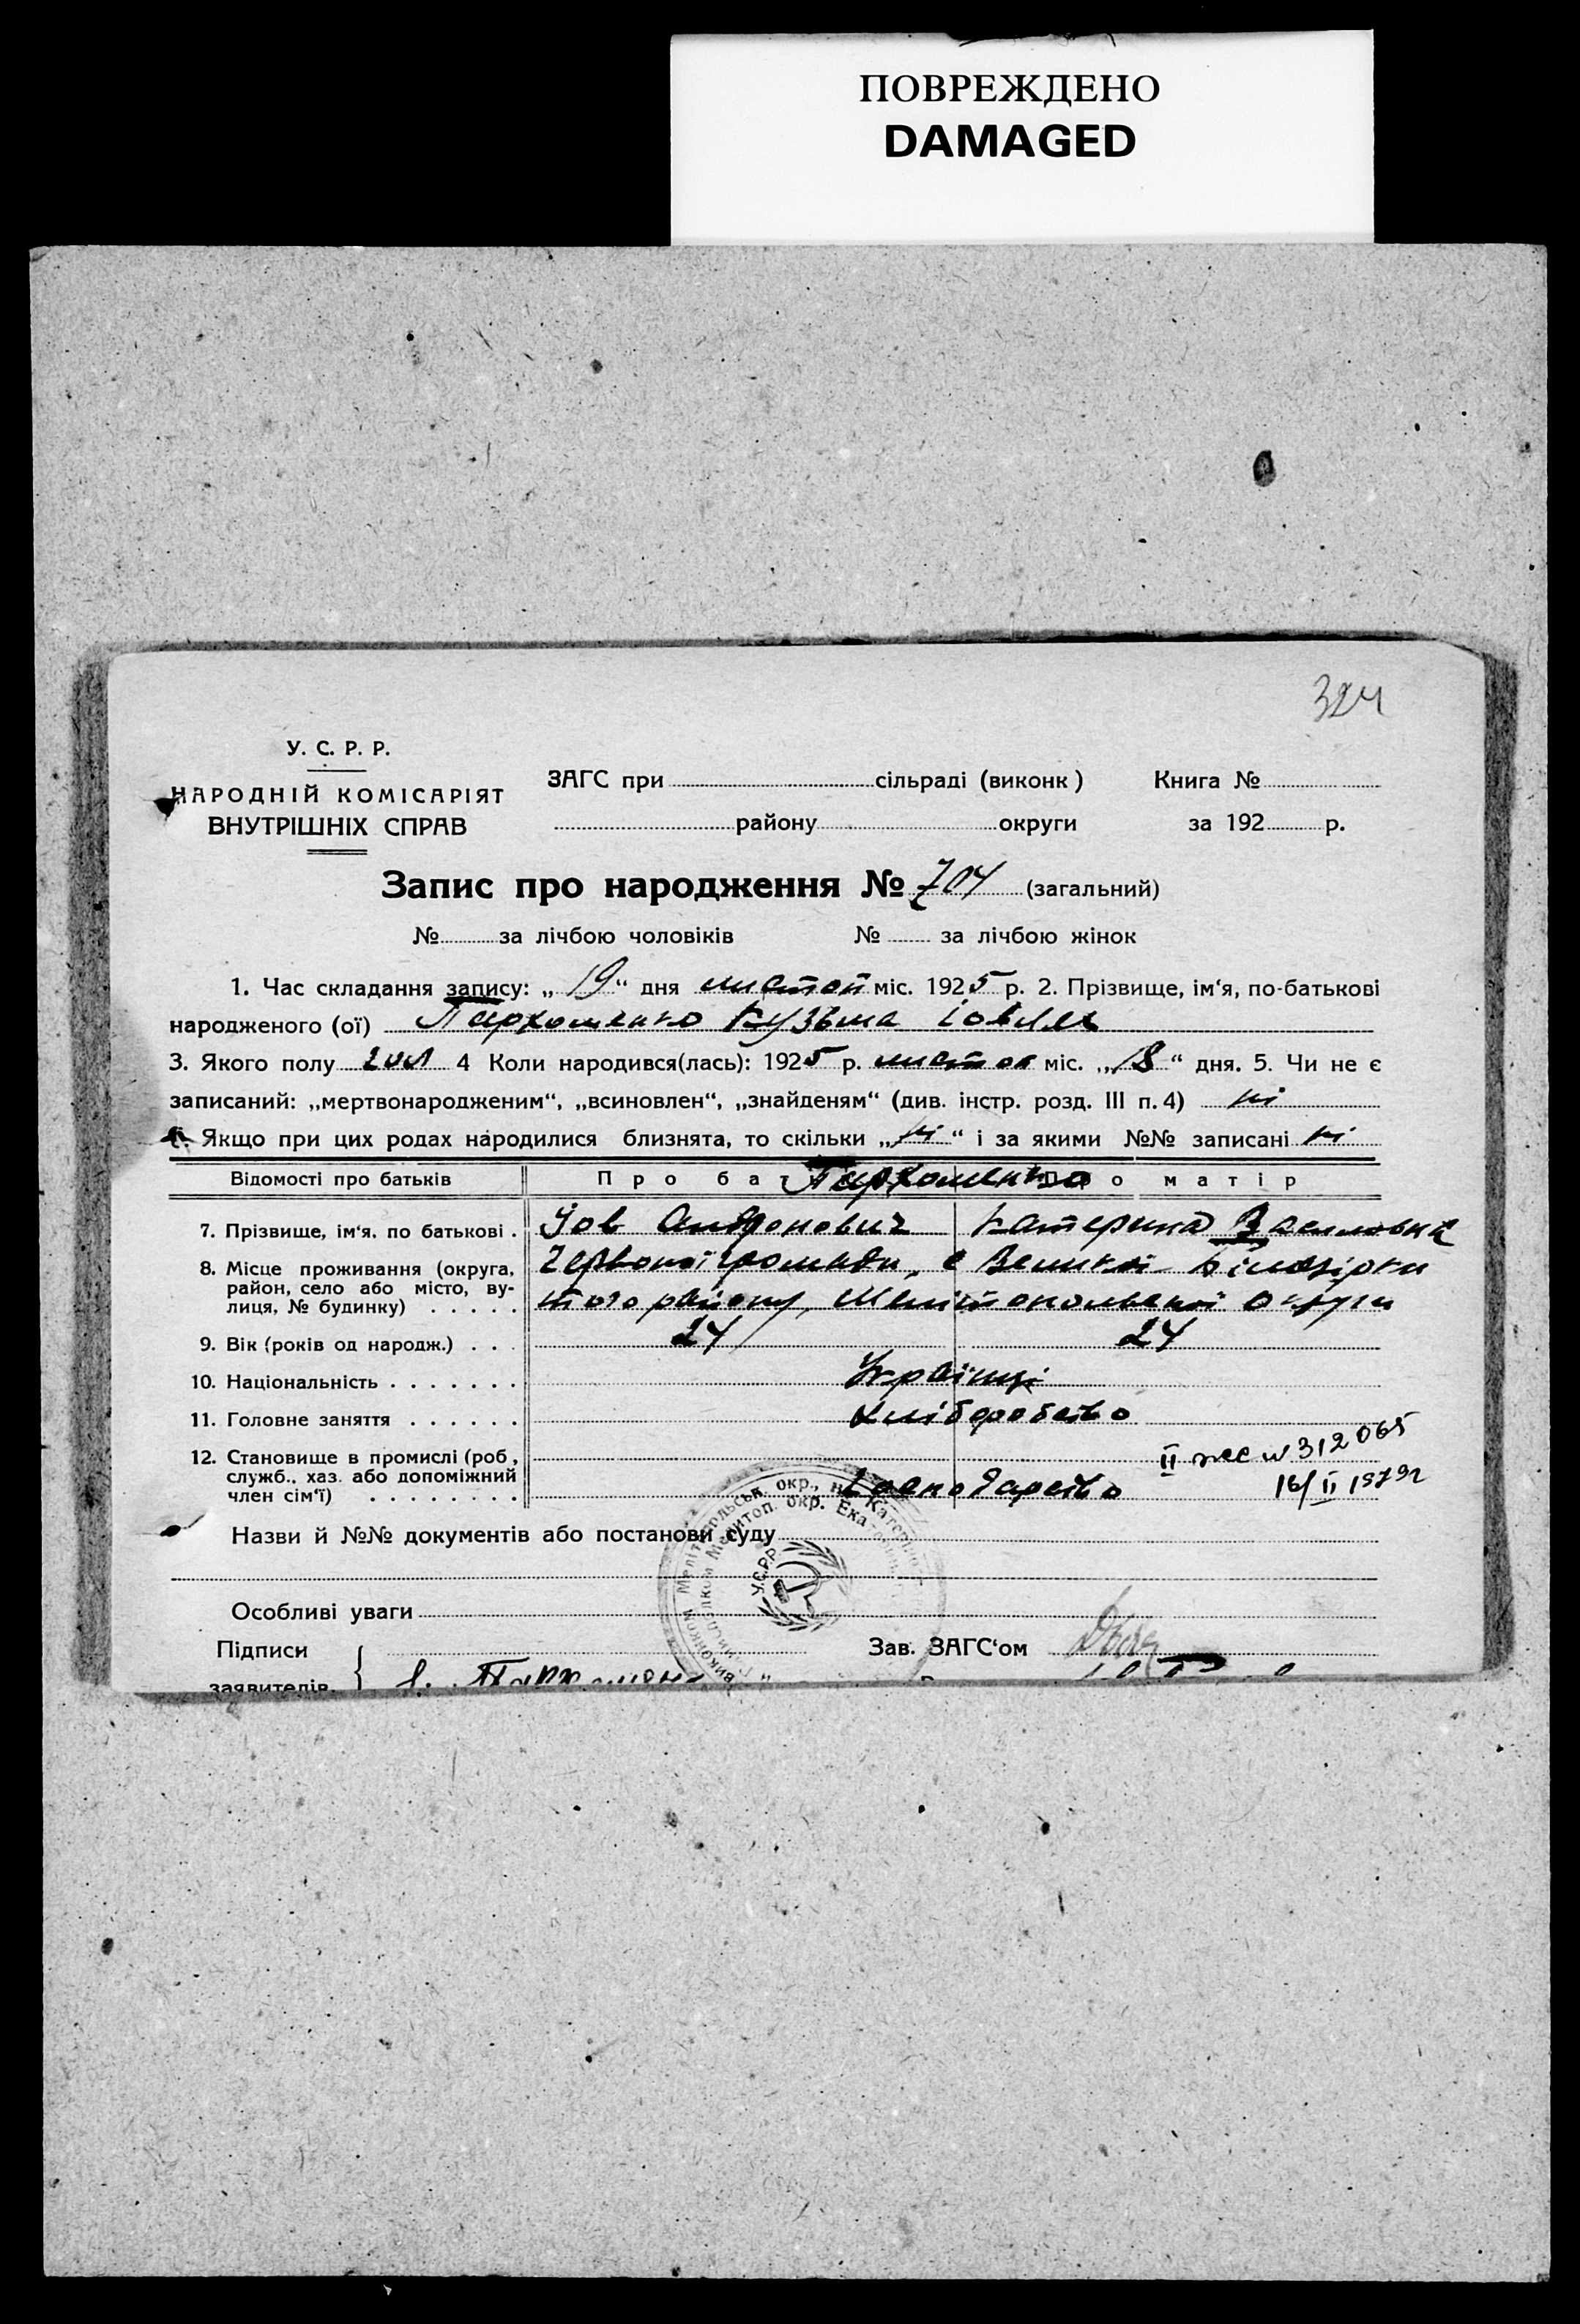 ПОВРЕЖДЕНО
DAMAGED
324
У. С. Р. Р.
НАРОДНІЙ КОМІСАРІЯТ
ВНУТРІШНІХ СПРАВ
ЗАГС при сільраді (виконк) Книга №
району округи за 192 р.
Запис про народження № 704 (загальний)
№ за лічбою чоловіків № за лічбою жінок
1. Час складання запису: „ 19 “ дня листоп міс. 1925 р. 2. Прізвище, ім'я, по-батькові
народженого (ої) Пархоменко Кузьма
3. Якого полу чол 4 Коли народився(лась): 1925 р. листоп міс. „ 18 “ дня. 5. Чи не є
записаний: „мертвонародженим“, „всиновлен“, „знайденям“ (див. інстр. розд. III п. 4) ні
6. Якщо при цих родах народилися близнята, то скільки „ ні “ і за якими №№ записані ні
Відомості про батьків Про бат Пархоменко о матір
7. Прізвище, ім'я, по батькові . Іов Катерина Василовна
8. Місце проживання (округа, район, село або місто, вулиця, № будинку) . . . . . Червоної громади, с Великой Білозірки
того району, Мелітопольської округи
9. Вік (років од народж.) . . . 24 24
10. Національність . . . . . . . Українці
11. Головне заняття . . . . . . Хліборобство
12. Становище в промислі (роб., служб., хаз. або допоміжний член сім'ї) . . . . . . . . Господарство
II жс № 312065
16/II 1979г
Назви й №№ документів або постанови суду
У.С.Р.Р.
Особливі уваги
Підписи
заявителів
Зав. ЗАГС'ом